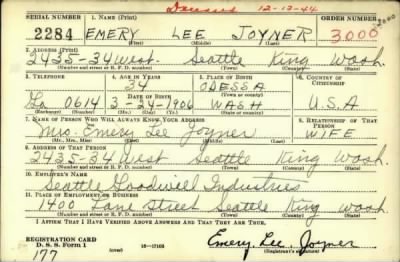 Deceased 12-12-44
SERIAL NUMBER 1. NAME (Print) ORDER NUMBER
2284 EMERY LEE JOYNER 3000
(First) (Middle) (Last)
2. ADDRESS (Print)
2435-34 West. Seattle King Wash.
(Number and street or R. F. D. number) (Town) (County) (State)
3. TELEPHONE 4. AGE IN YEARS 5. PLACE OF BIRTH 6. COUNTRY OF CITIZENSHIP
34 ODESSA
DATE OF BIRTH (Town or county)
La 0614 3-24-1906 WASH U.S.A
(Exchange) (Number) (Mo.) (Day) (Yr.) (State or country)
7. NAME OF PERSON WHO WILL ALWAYS KNOW YOUR ADDRESS 8. RELATIONSHIP OF THAT PERSON
Mrs. Emery Lee Joyner WIFE
(Mr., Mrs., Miss) (First) (Middle) (Last)
9. ADDRESS OF THAT PERSON
2435-34 West Seattle King Wash.
(Number and street or R. F. D. number) (Town) (County) (State)
10. EMPLOYER'S NAME
Seattle Goodwill Industries
11. PLACE OF EMPLOYMENT OR BUSINESS
1400 Lane Street Seattle King Wash
(Number and street or R. F. D. number) (Town) (County) (State)
I AFFIRM THAT I HAVE VERIFIED ABOVE ANSWERS AND THAT THEY ARE TRUE.
REGISTRATION CARD
D. S. S. Form 1 (over) 16-17105 Emery Lee Joyner
177 (Registrant's signature)